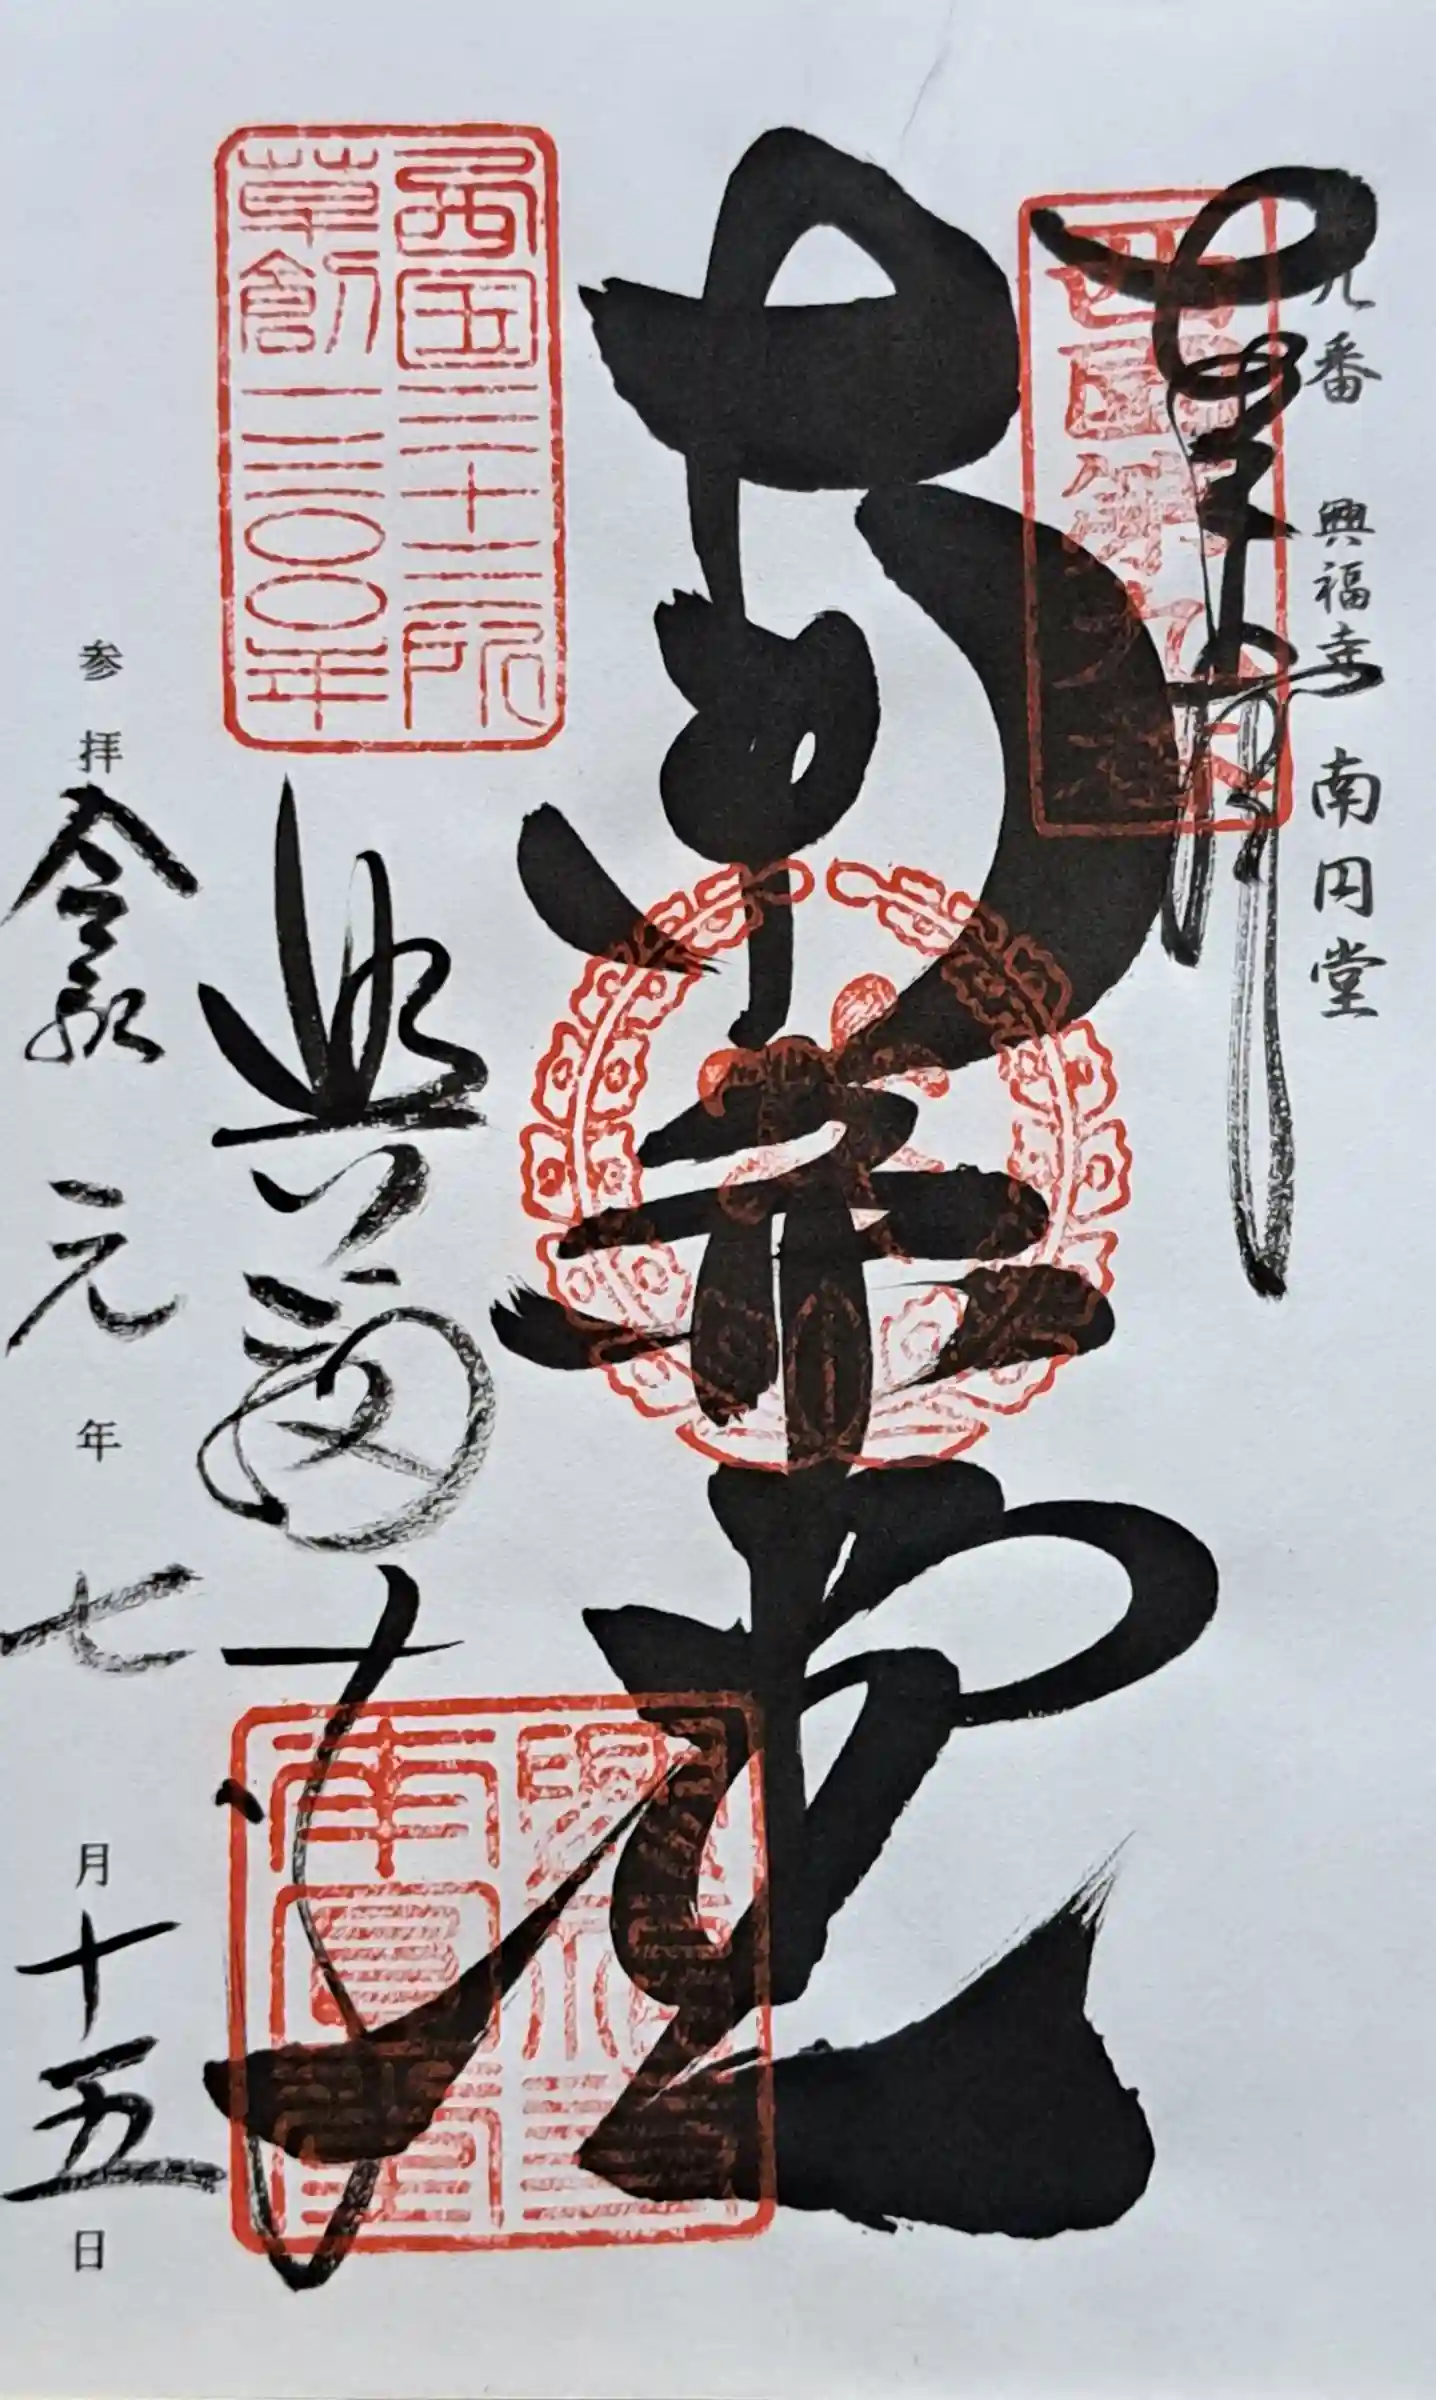 九番 興福寺 南円堂
奉拝
西国第九番
南円堂
西国三十三所
草創一三〇〇年
興福寺
参拝 令和元年七月十五日